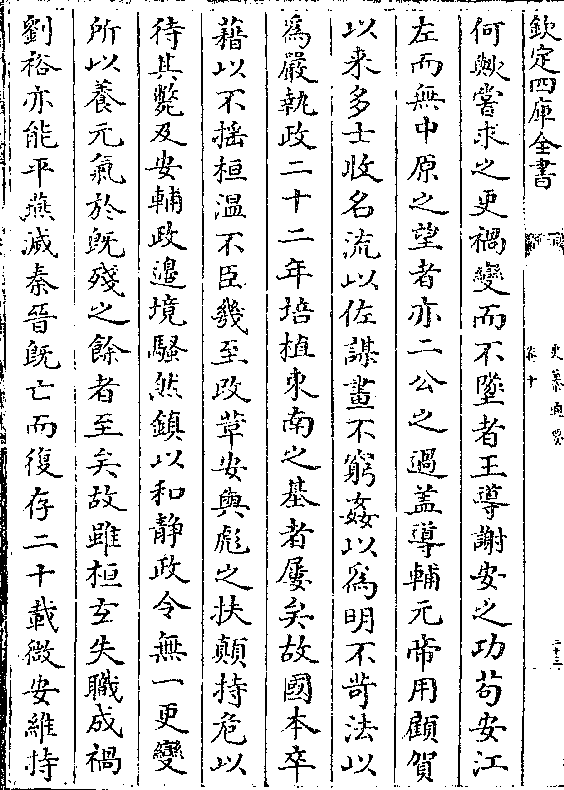 欽定四庫全書
史纂通要
卷十
二十三
何歟嘗求之更禍變而不墜者王導謝安之功苟安江
左而無中原之望者亦二公之過蓋導輔元帝用顧賀
以来多士收名流以佐謀畫不窮姦以爲明不苛法以
爲嚴執政二十二年培植東南之基者屢矣故國本卒
藉以不揺桓温不臣幾至改革安與彪之扶顛持危以
待其斃及安輔政邉境騷然鎮以和静政令無一更變
所以養元氣於旣殘之餘者至矣故雖桓玄失職成禍
劉裕亦能平燕滅秦晉旣亡而復存二十載微安維持